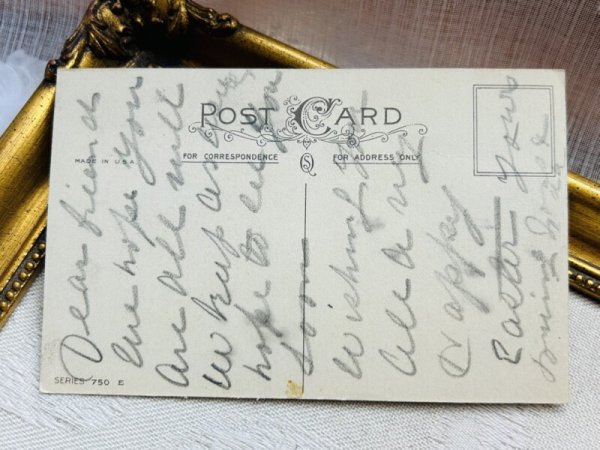 POST CARD
MADE IN U.S.A.
FOR CORRESPONDENCE
FOR ADDRESS ONLY
SERIES 750 E
Dear friends
We hope you
are all well
hope to you
soon
Wishing you
all a very
Happy
Easter yours